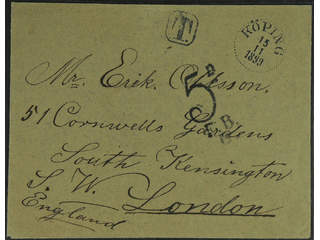 T
KÖPING
15
11
1899
Mr. Erik Olsson,
5
51 Cornwells Gardens
South Kensington
S. W. London
England